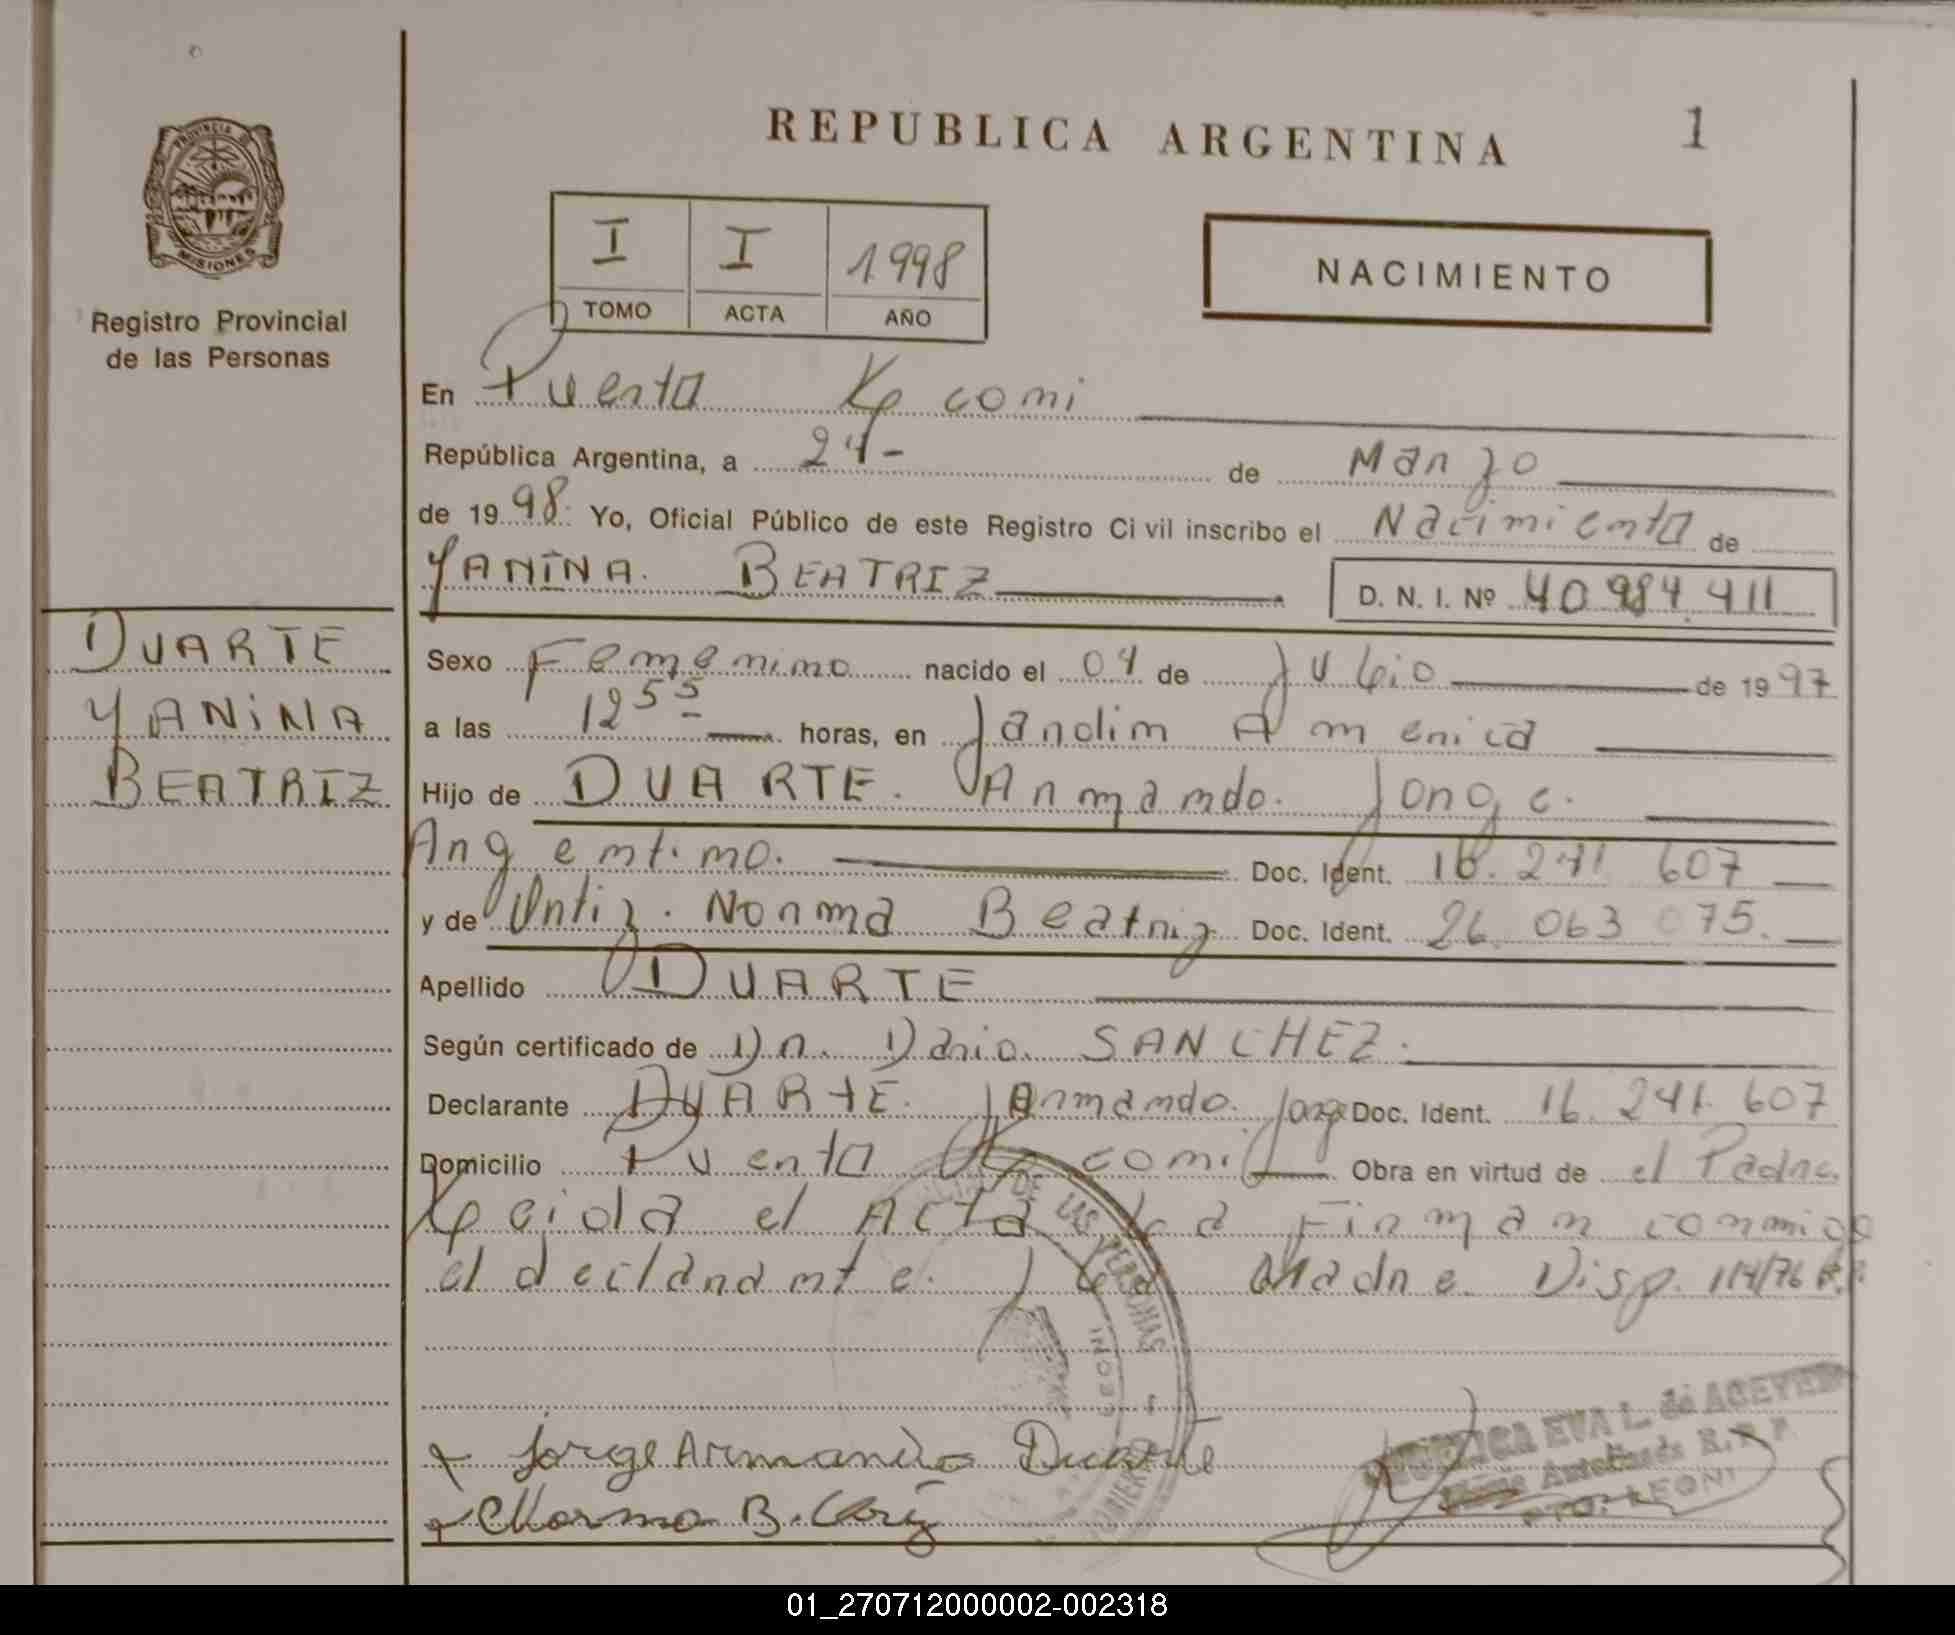 REPUBLICA ARGENTINA
1
PROVINCIA DE MISIONES
Registro Provincial
de las Personas
I I 1998
TOMO ACTA AÑO
NACIMIENTO
En Puerto Leoni
República Argentina, a 24- de Marzo
de 1998. Yo, Oficial Público de este Registro Civil inscribo el Nacimiento de
YANINA. BEATRIZ
D. N. I. Nº 40 984 411
DUARTE
YANINA
BEATRIZ
Sexo Femenino nacido el 04 de Julio de 1997
a las 1255 horas, en Jardin America
Hijo de DUARTE. Armando. Jorge.
Argentino. Doc. Ident. 16. 241 607
y de Ortiz. Norma Beatriz Doc. Ident. 26 063 075.
Apellido DUARTE
Según certificado de Dr. Dario SANCHEZ.
Declarante DUARTE. Armando. Jorge Doc. Ident. 16. 241. 607
Domicilio Puerto Leoni Obra en virtud de el Padre.
Leida el Acta La Firman conmigo
el declarante. y La Madre. Disp. 114/76
DE LAS PERSONAS
Jorge Armando Duarte
Norma B.
EVA L. de
PTO. LEONI
01_270712000002-002318